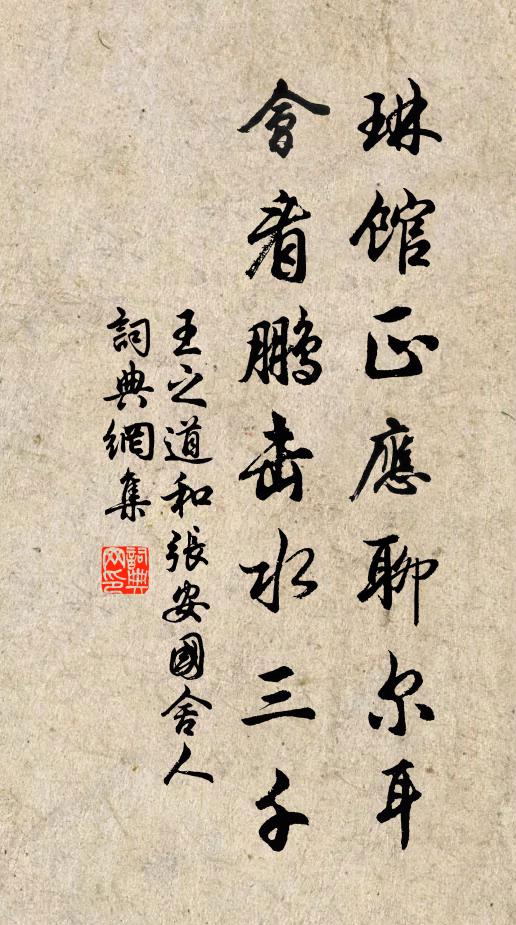 琳館正應聊尔耳
會看鵬击水三千
王之道和張安國舍人
詞典網集
詞典网印